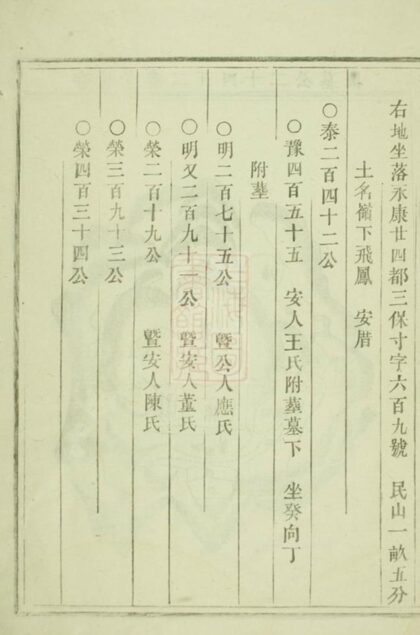 右地坐落永康廿四都三保寸字六百九號 民山一畝五分
土名嶺下飛鳳 安厝
○泰二百四十二公
○豫四百五十五 安人王氏附葬墓下 坐癸向丁
附塟
○明二百七十五公 暨公人應氏
○明又二百九十一公 暨安人董氏
○榮二百十九公 暨安人陳氏
○榮三百九十三公
○榮四百三十四公